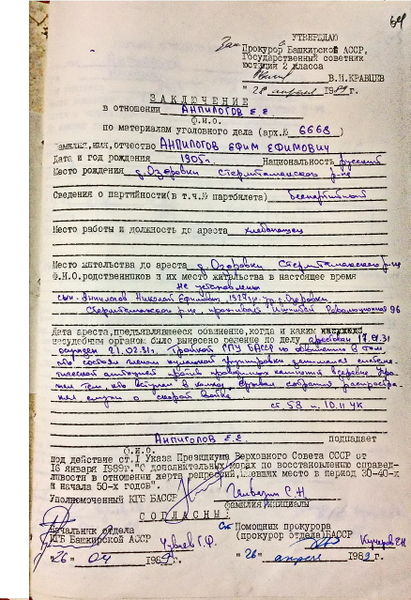 69
УТВЕРЖДАЮ
Зам. Прокурор Башкирской АССР,
Государственный советник
юстиции 2 класса
В.И.КРАВЦЕВ
"28" апреля 1989г.
ЗАКЛЮЧЕНИЕ
в отношении АНПИЛОГОВ Е.Е
Ф.И.О.
по материалам уголовного дела (арх.№ 6668)
Фамилия,имя,отчество АНПИЛОГОВ ЕФИМ ЕФИМОВИЧ
Дата и год рождения 1905г. Национальность русский
Место рождения д.Озеровки Стерлитамакского р-на
Сведения о партийности(в т.ч.№ партбилета) беспартийный
Место работы и должность до ареста хлебопашец
Место жительства до ареста д.Озеровки Стерлитамакского р-на
Ф.И.О.родственников и их место жительства в настоящее время
не установлены
сын- Анпилогов Николай Ефимович, 1927г.р. ур.д.Озеровки
Стерлитамакского р-на проживает Революционная 96
Дата ареста,предъявлявшееся обвинение,когда и каким
несудебным органом было вынесено решение по делу арестован 17.01.31
осужден 21.02.31г. Тройкой ГПУ БАССР по обвинению в том
что состоял членом группировки
агитацией против проводимых кампаний в деревне
тем кто вступил в колхоз, срывал собрания
слухи о скорой войне
ст. 58 п. 10.11 УК
АНПИЛОГОВ Е.Е подпадает
Ф.И.О.
под действие ст.I Указа Президиума Верховного Совета СССР от
16 января 1989г."О дополнительных мерах по восстановлению справед-
ливости в отношении жертв репрессий, имевших место в период 30-40-х
и начала 50-х годов".
Уполномоченный КГБ БАССР С.Н
фамилия инициалы
СОГЛАСНЫ:
Начальник отдела
КГБ Башкирской АССР Г.Ф.
"26" 04 1989г.
Ст Помощник прокурора
(прокурор отдела)БАССР Кучеров
"26" апреля 1989г.